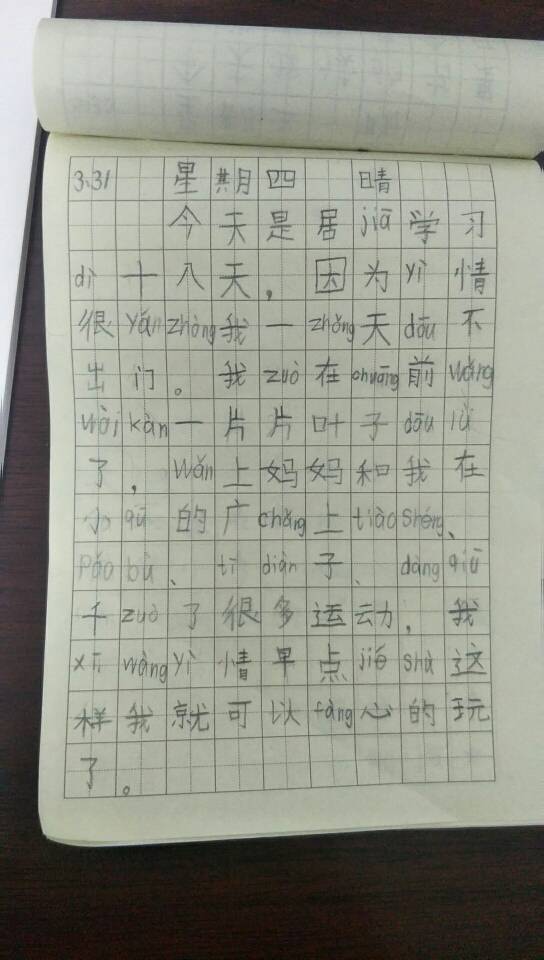 3.31 星期四 晴
今天是居jiā学习
dì十八天，因为yì情
很yánzhòng我一zhěng天dōu不
出门。我zuò在chuāng前wǎng
wài kàn一片片叶子dōu lǜ
了，wǎn上妈妈和我在
小qū的广chǎng上tiào shéng、
Pǎo bù、tī diàn子、dàng qiū
千zuò了很多运动，我
xī wàng yì情早点jié shù这
样我就可以fàng心的玩
了。